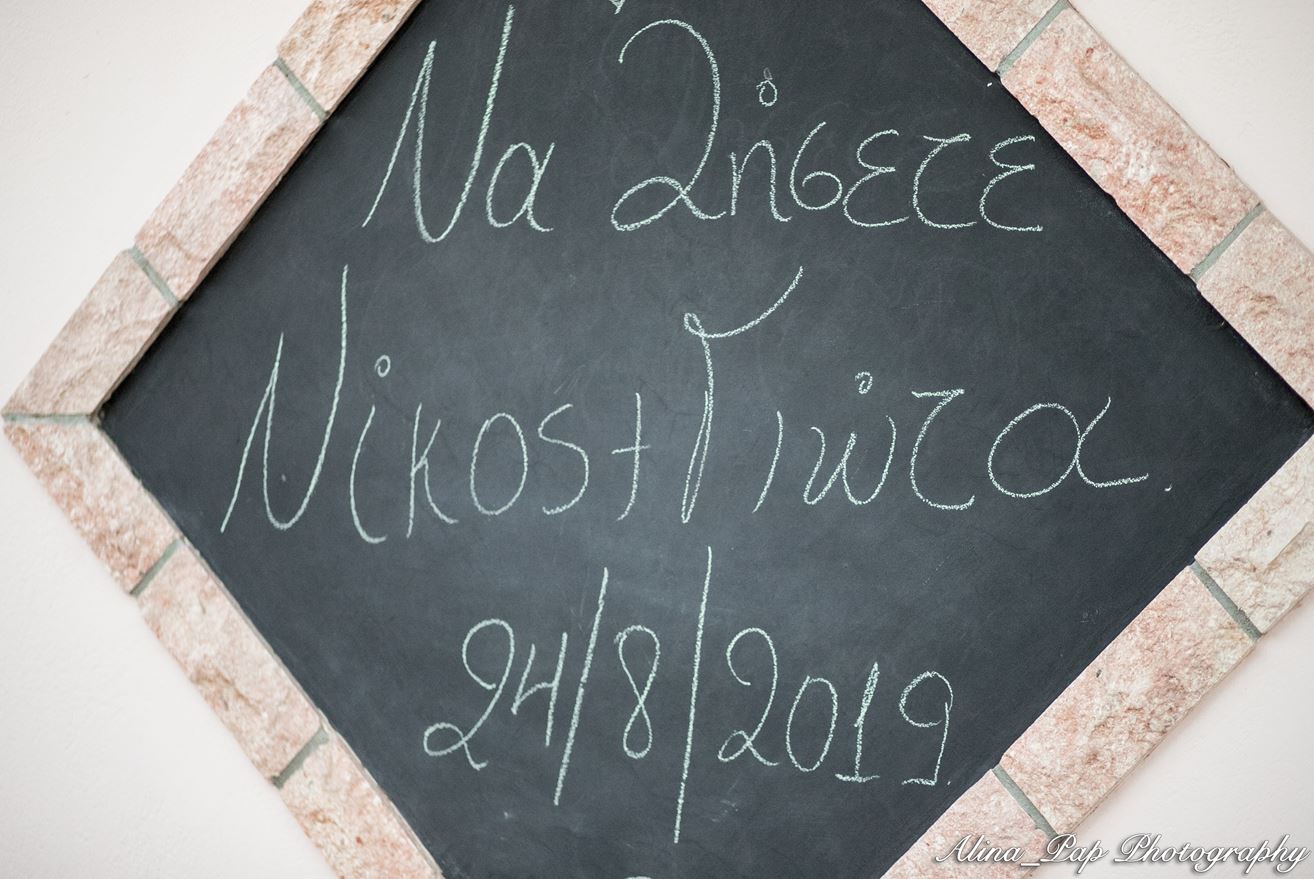 Να Ζήσετε
Νίκος + Γιώτα
24/8/2019
Alina_Pap Photography